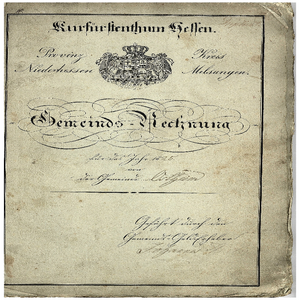 Kurfürstenthum Hessen.
Provinz Kreis
Niederhessen Melsungen.
Gemeinds-Rechnung
für das Jahr
von
der Gemeinde
Geführt durch den
Gemeinds-Gelderheber